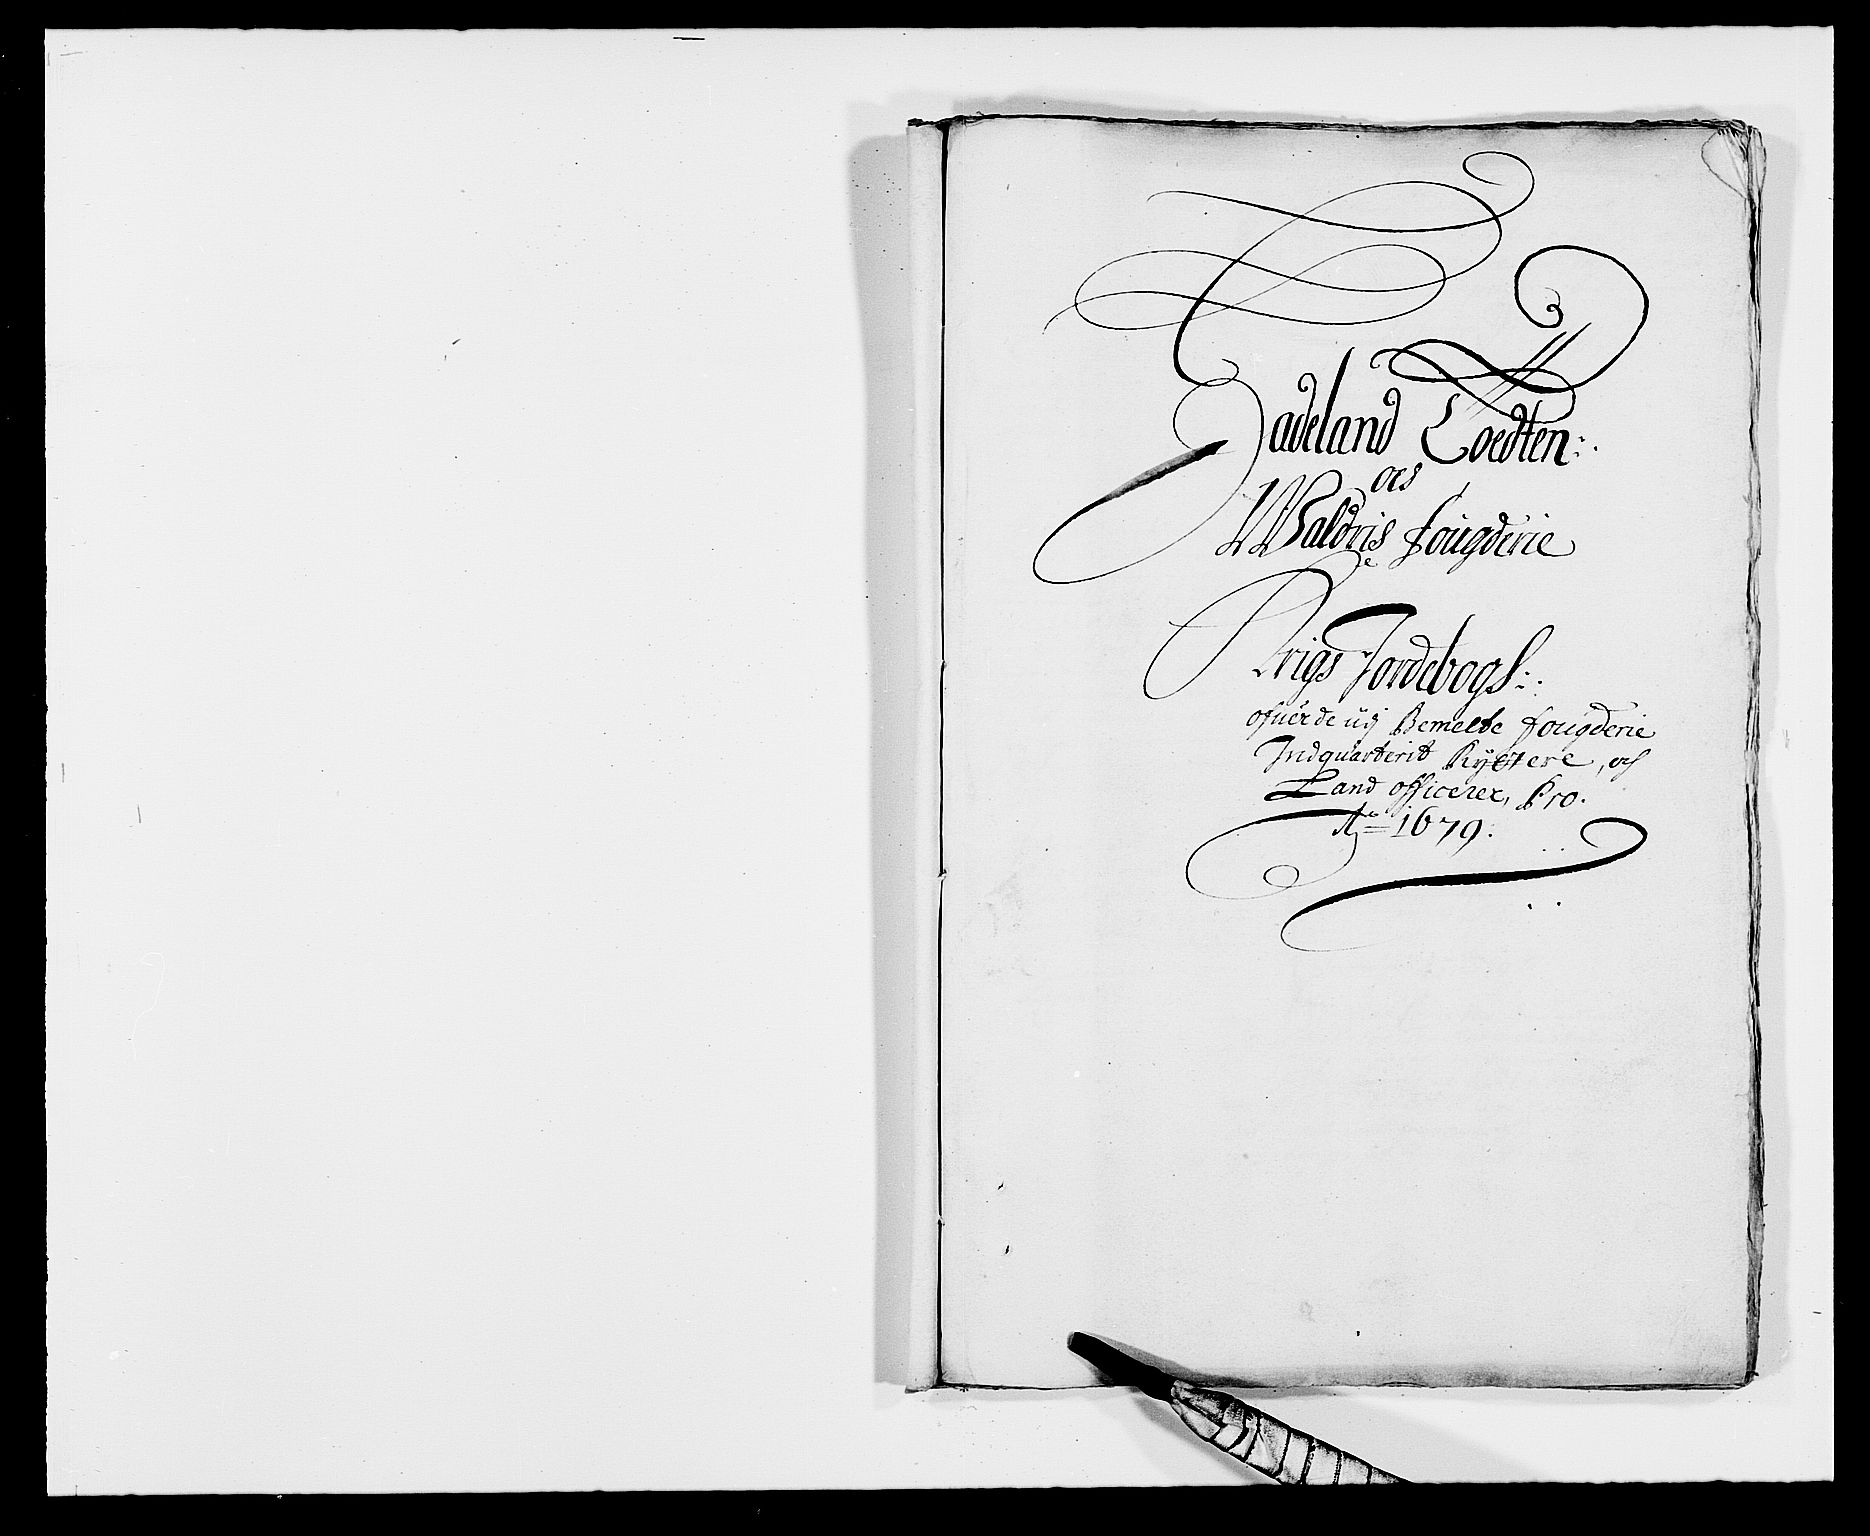 Hadeland Toedten:
och
Waldris fougderie
Krigs Jordebogs:
ofuer de udj Bemelte fougderie
Indquarterit Rÿttere, och
Land officerer, Pro.
Ao= 1679: